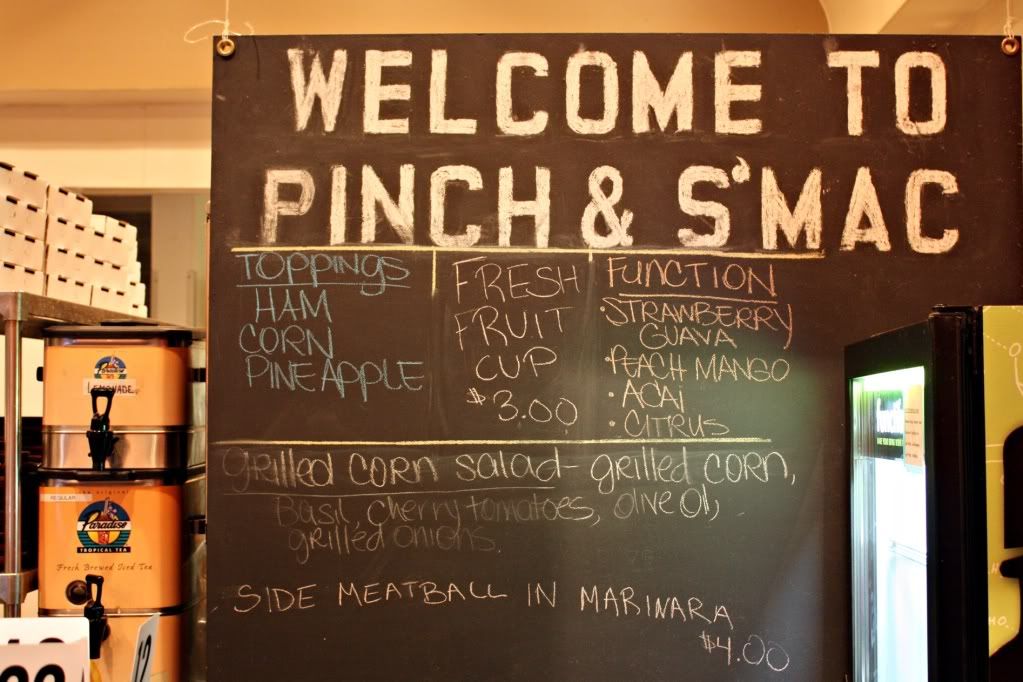 WELCOME TO
PINCH & S'MAC
TOPPINGS
HAM
CORN
PINEAPPLE
FRESH
FRUIT
CUP
$3.00
FUNCTION
·STRAWBERRY
GUAVA
·PEACH MANGO
·ACAI
·CITRUS
grilled corn salad- grilled corn,
Basil, cherry tomatoes, olive oil,
grilled onions.
SIDE MEATBALL IN MARINARA
$4.00
Paradise
LEMONADE
REGULAR
Paradise
TROPICAL TEA
Fresh Brewed Iced Tea
12